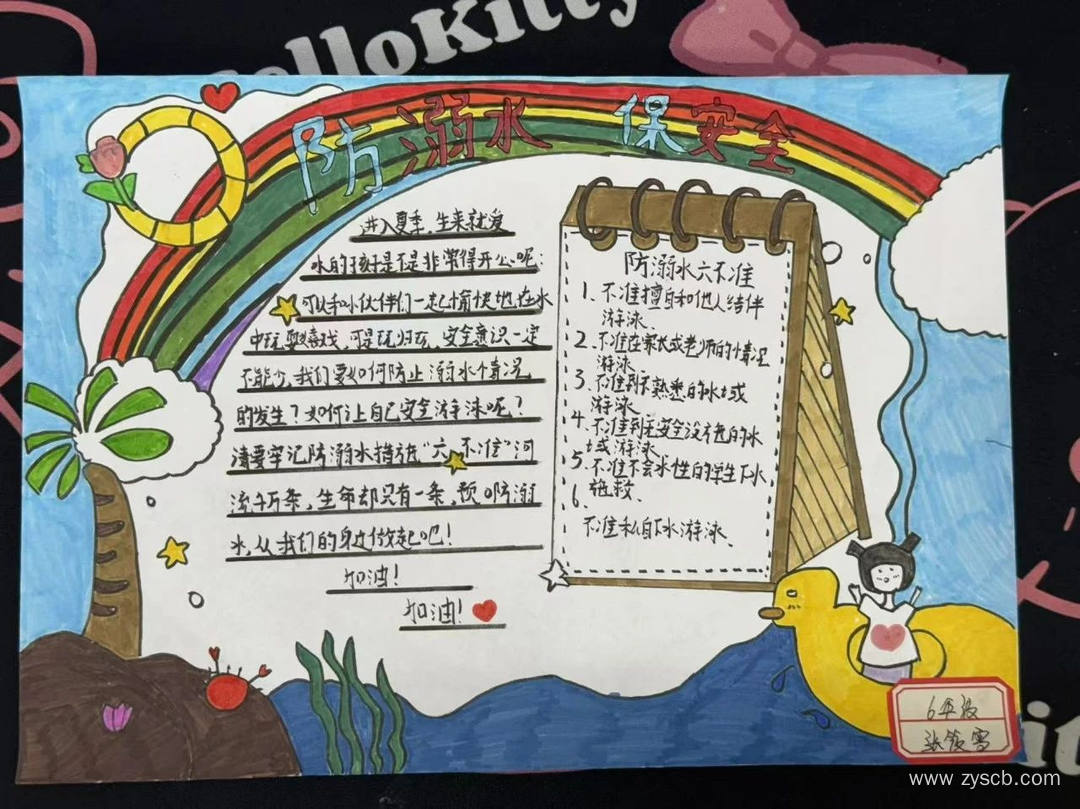 HelloKitty
防溺水 保安全
进入夏季，生来就爱
水的孩子是不是非常得开心呢：
可以和小伙伴们一起愉快地在水
中玩耍嬉戏，可是玩归玩，安全意识一定
不能少，我们要如何防止溺水情况
的发生？如何让自己安全游泳呢？
请要牢记防溺水措施“六不准”河
流千万条，生命却只有一条，预防溺
水，从我们的身边做起吧！
加油！
加油！
防溺水六不准
1、不准擅自和他人结伴
游泳、
2、不准在家长或老师的情况
游泳
3、不准到不熟悉的水域
游泳
4、不准到无安全设施的水
域游泳
5、不准不会水性的学生下水
施救
6、
不准私自下水游泳、
6年级
it
www.zyscb.com